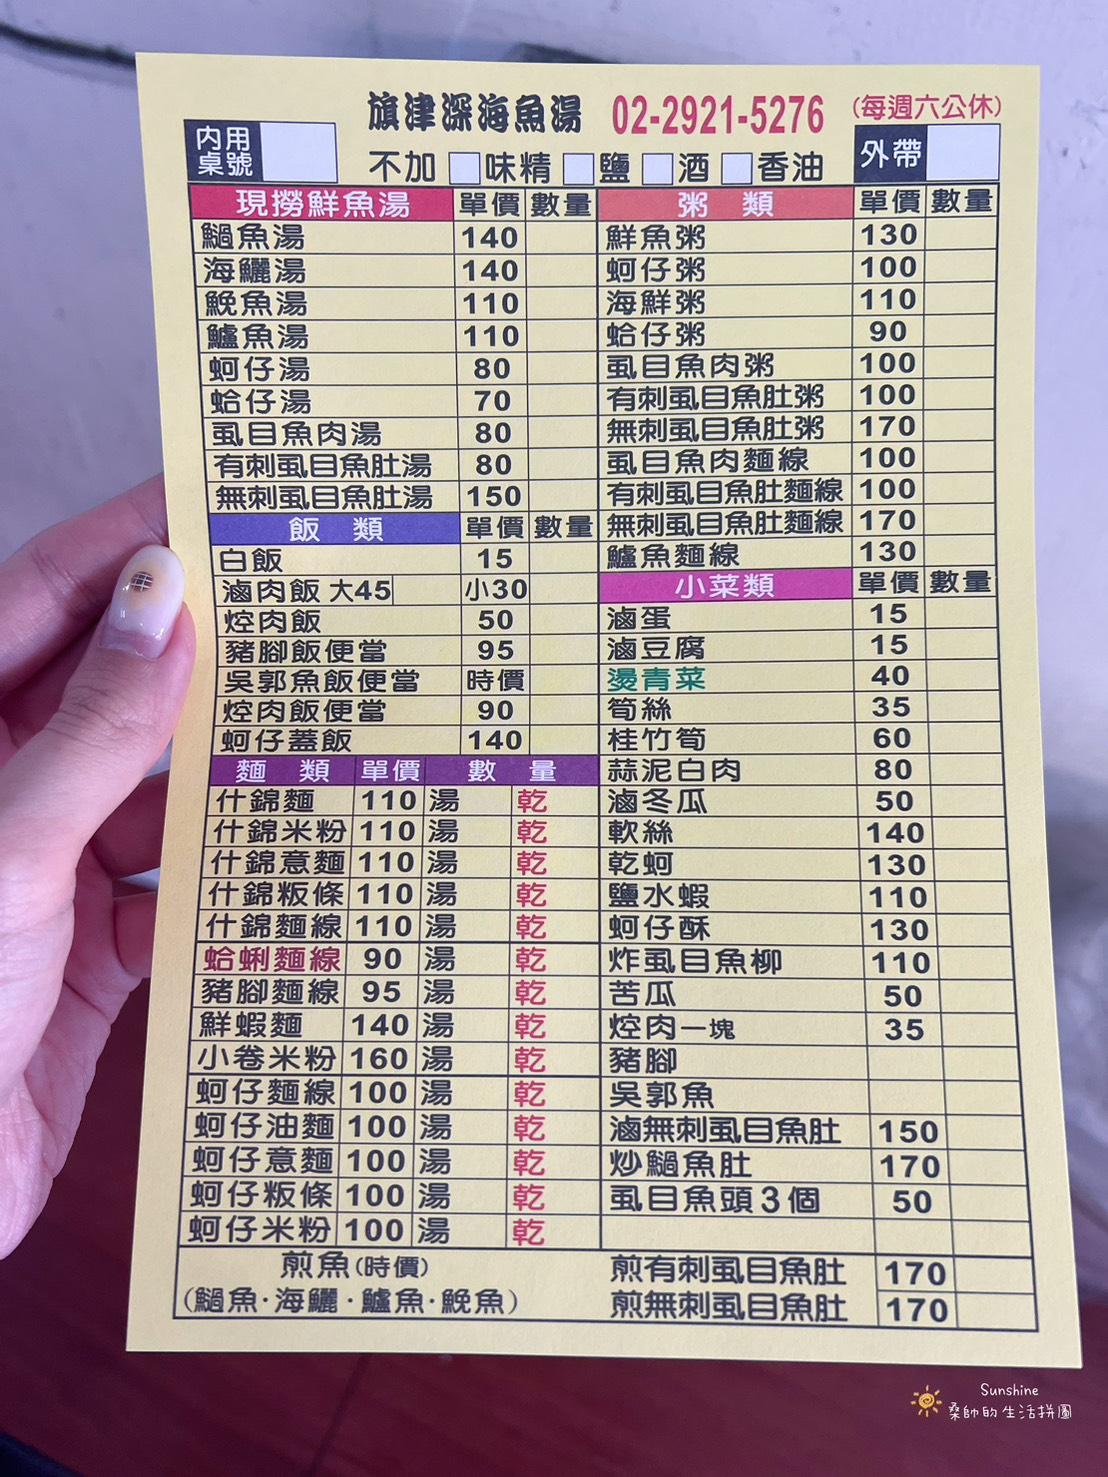 旗津深海魚湯 02-2921-5276 (每週六公休)
內用桌號 不加 味精 鹽 酒 香油 外帶
現撈鮮魚湯 單價 數量
鰛魚湯 140
海鱺湯 140
鮸魚湯 110
鱸魚湯 110
蚵仔湯 80
蛤仔湯 70
虱目魚肉湯 80
有刺虱目魚肚湯 80
無刺虱目魚肚湯 150
飯類 單價 數量
白飯 15
滷肉飯 大45 小30
焢肉飯 50
豬腳飯便當 95
吳郭魚飯便當 時價
焢肉飯便當 90
蚵仔蓋飯 140
麵類 單價 數量
什錦麵 110 湯 乾
什錦米粉 110 湯 乾
什錦意麵 110 湯 乾
什錦粄條 110 湯 乾
什錦麵線 110 湯 乾
蛤蜊麵線 90 湯 乾
豬腳麵線 95 湯 乾
鮮蝦麵 140 湯 乾
小卷米粉 160 湯 乾
蚵仔麵線 100 湯 乾
蚵仔油麵 100 湯 乾
蚵仔意麵 100 湯 乾
蚵仔粄條 100 湯 乾
蚵仔米粉 100 湯 乾
煎魚(時價)
(鰛魚·海鱺·鱸魚·鮸魚)
粥類 單價 數量
鮮魚粥 130
蚵仔粥 100
海鮮粥 110
蛤仔粥 90
虱目魚肉粥 100
有刺虱目魚肚粥 100
無刺虱目魚肚粥 170
虱目魚肉麵線 100
有刺虱目魚肚麵線 100
無刺虱目魚肚麵線 170
鱸魚麵線 130
小菜類 單價 數量
滷蛋 15
滷豆腐 15
燙青菜 40
筍絲 35
桂竹筍 60
蒜泥白肉 80
滷冬瓜 50
軟絲 140
乾蚵 130
鹽水蝦 110
蚵仔酥 130
炸虱目魚柳 110
苦瓜 50
焢肉一塊 35
豬腳
吳郭魚
滷無刺虱目魚肚 150
炒鰛魚肚 170
虱目魚頭3個 50
煎有刺虱目魚肚 170
煎無刺虱目魚肚 170
Sunshine
桑帥的生活拼圖